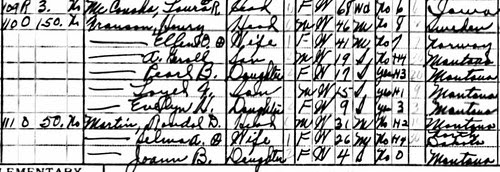 109 R 3. No McCuske, Laura R. Head 1 F W 68 Wd No 6 Iowa
110 O 150. No Branson, Henry Head M W 46 M No 8 Sweden
Ellen O. Wife F W 41 M No 7 Norway
A. Son M W 19 S No H4 Montana
Pearl B. Daughter F W 17 S Yes H3 Montana
Loyd Son M W 15 S Yes H1 Montana
Evelyn Daughter F W 9 S Yes 3 Montana
111 O 50. No Martin, Randal D. Head M W 31 M No H2 Montana
Selma A. Wife F W 26 M No H4 Dakota
Joann B. Daughter F W 4 S No 0 Montana
ELEMENTARY